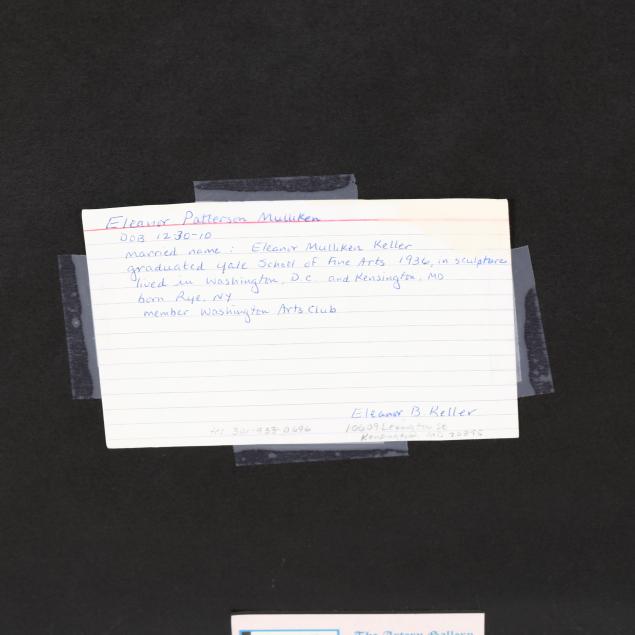 Eleanor Patterson Mulliken
DOB 12-30-10
married name: Eleanor Mulliken Keller
graduated Yale School of Fine Arts 1936, in sculpture
lived in Washington, D.C. and Kensington, MD
born Rye, NY
member Washington Arts Club
Eleanor B. Keller
301-933-0696 10609 Lexington St
Kensington MD 20895
The Artery Gallery